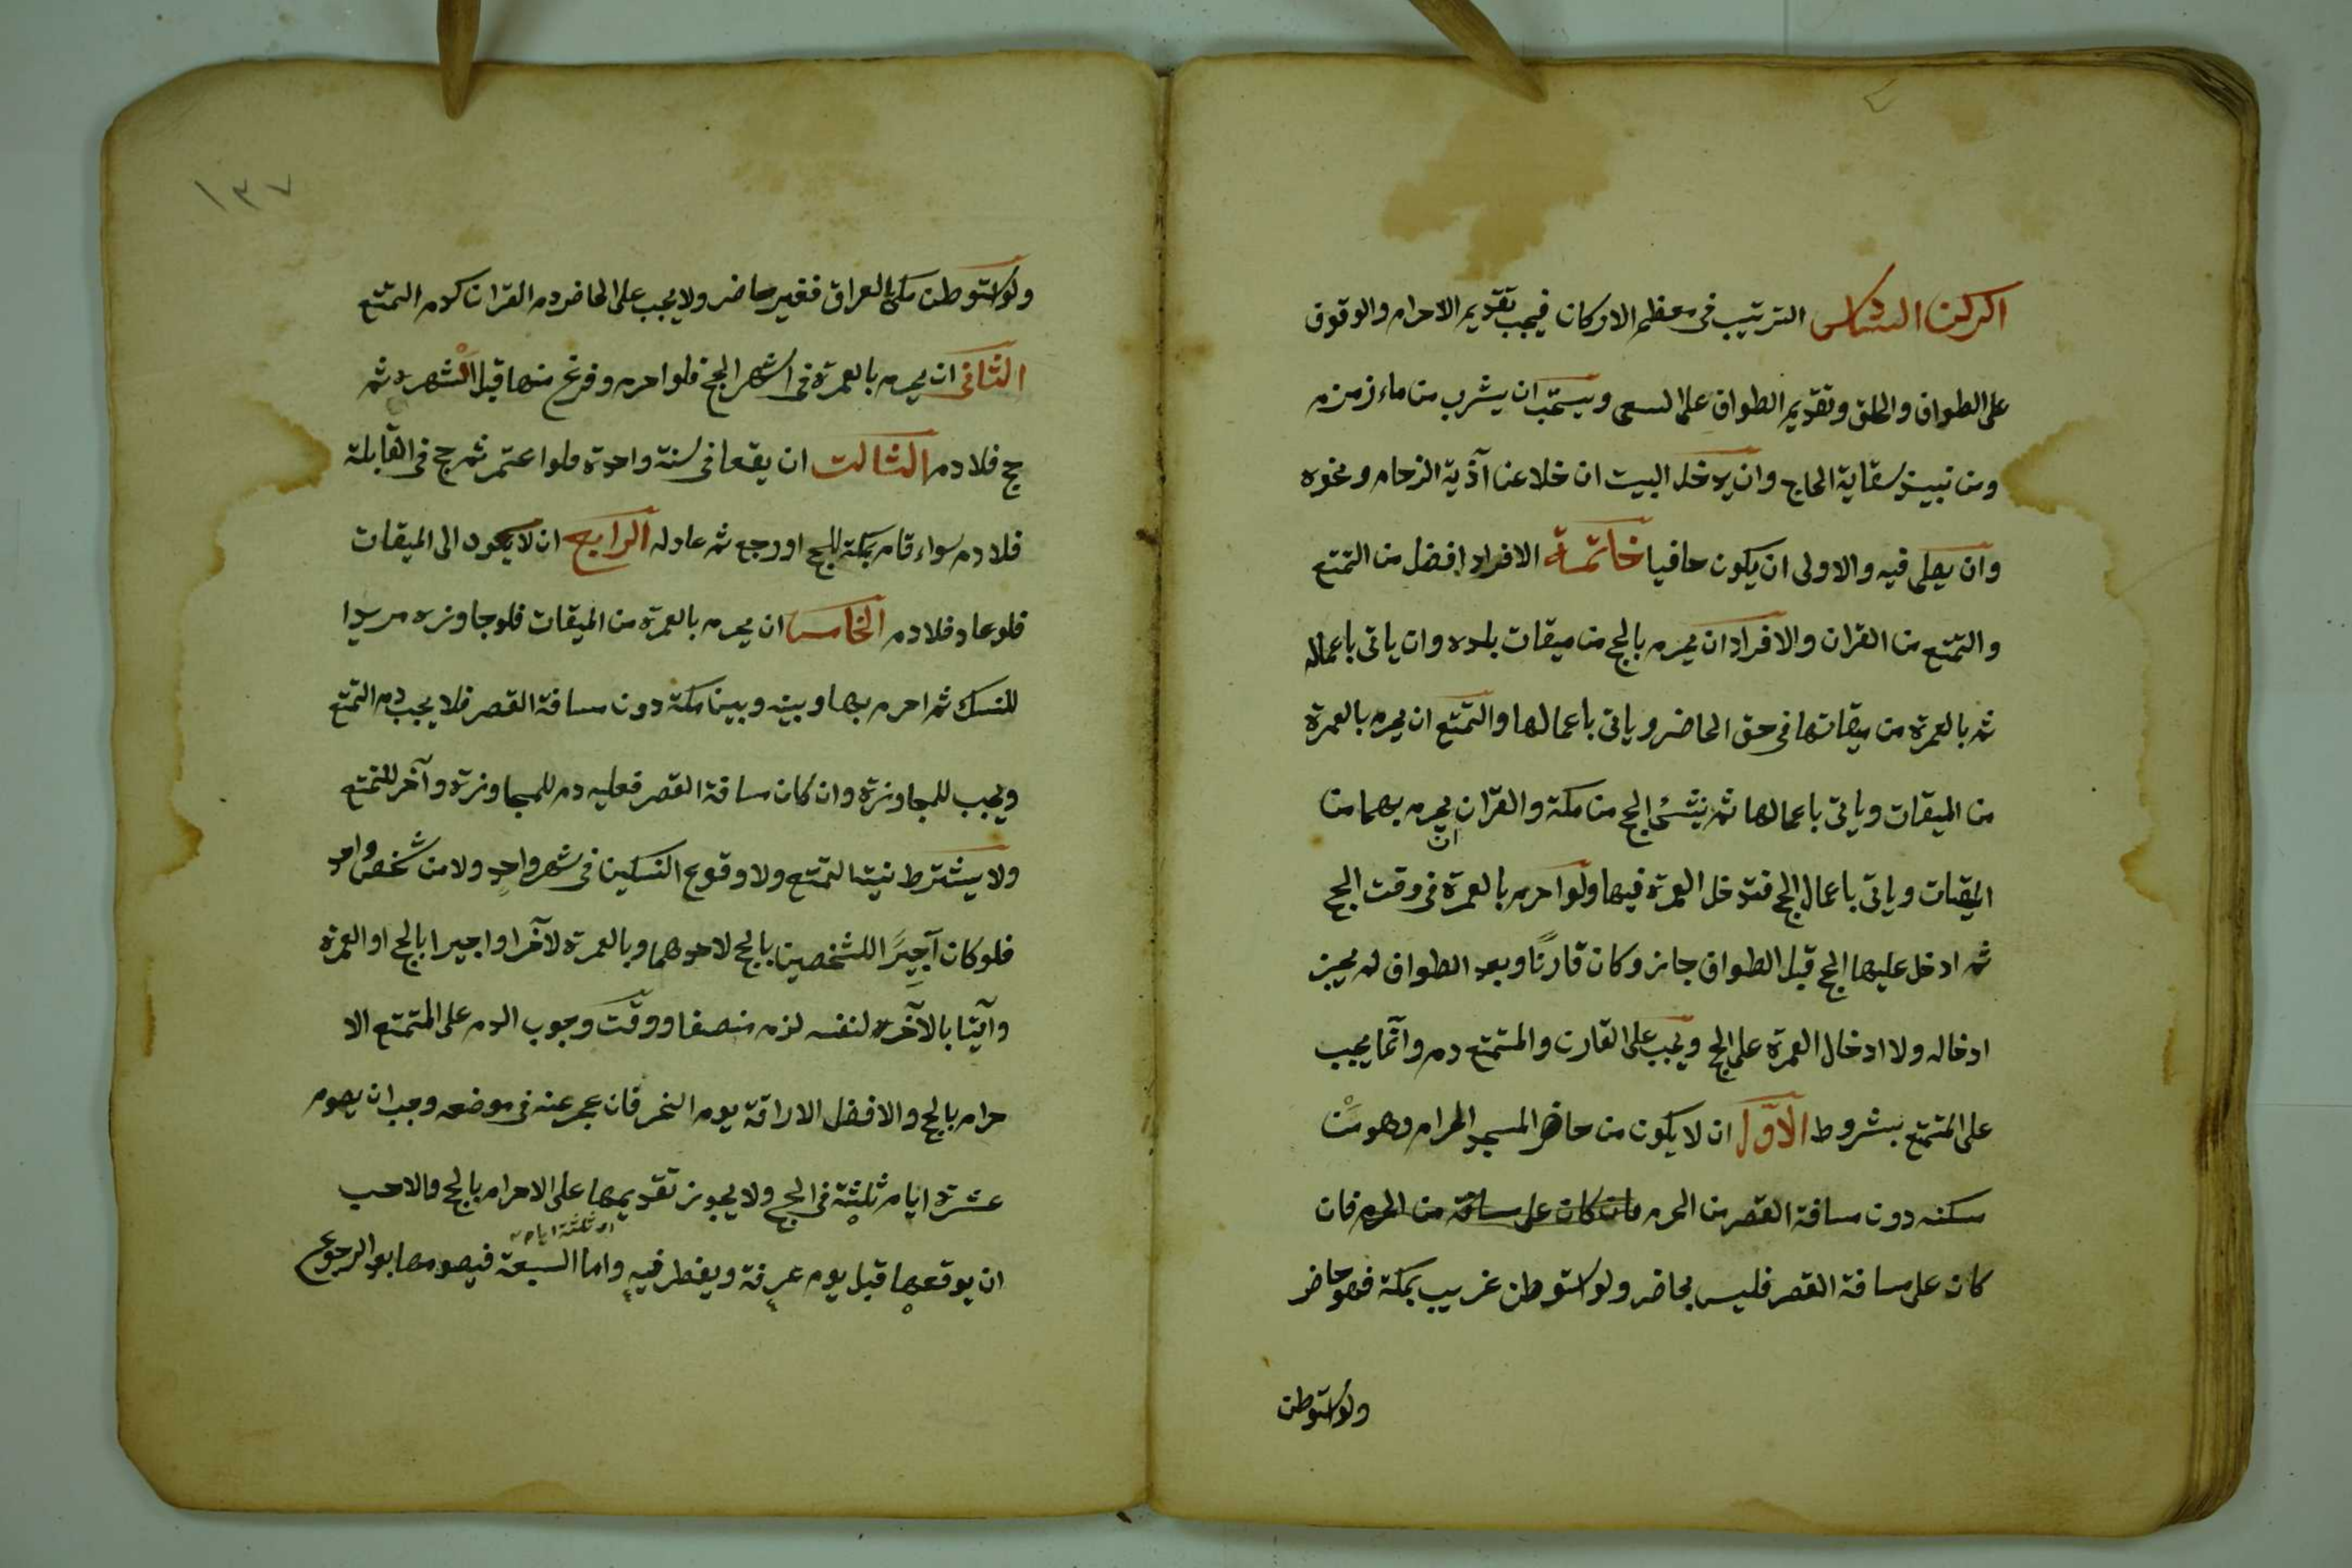 الركن السادس الترتيب في معظم الاركان فيجب تقديم الاحرام والوقوف
على الطواف والحلق وتقديم الطواف على السعى ويستحب ان يشرب من ماء زمزم
ومن نبيذ سقاية الحاج وان يدخل البيت ان خلا عن آذية الزحام ونحوه
وان يصلى فيه والاولى ان يكون حافيا خاتمة الافراد افضل من التمتع
والتمتع من القران والافراد ان يحرم بالحج من ميقات بلده وان ياتى باعماله
ثم بالعمرة من ميقاتها في حق الحاضر وياتى باعمالها والتمتع ان يحرم بالعمرة
من الميقات وياتى باعمالها ثم ينشئ الحج من مكة والقران ان يحرم بهما من
الميقات وياتى باعمال الحج فتدخل العمرة فيها ولو احرم بالعمرة في وقت الحج
ثم ادخل عليها الحج قبل الطواف جاز وكان قارنًا وبعد الطواف لم يجز
ادخاله ولا ادخال العمرة على الحج ويجب على القارن والمتمتع دم وانّما يجب
على المتمتع بشروط الاوّل ان لا يكون من حاضر المسجد الحرام وهو مَنْ
سكنه دون مسافة القصر من الحرم فان كان على مسافة من الحرم فان
كان على مسافة القصر فليس بحاضر ولو استوطن غريب بمكة فهو حاضر
ولو استوطن
١٣٧
ولو استوطن مكى بالعراق فغير حاضر ولا يجب على الحاضر دم القران كدم التمتع
الثانى ان يحرم بالعمرة في اشهر الحج فلو احرم وفرغ منها قبل اشهره ثم
حج فلا دم الثالث ان يقعا في سنة واحدة فلو اعتمر ثم حج في القابلة
فلا دم سواء قام بمكة للحج او رجع ثم عاد له الرابع ان لا يعود الى الميقات
فلو عاد فلا دم الخامس ان يحرم بالعمرة من الميقات فلو جاوزه مريدا
للنسك ثم احرم بها وبينه وبين مكة دون مسافة القصر فلا يجب دم التمتع
ويجب للمجاوزة وان كان مسافة القصر فعليه دم للمجاوزة وآخر للتمتع
ولا يشترط نية التمتع ولا وقوع النسكين في شهر واحدٍ ولا من شخص واحد
فلو كان آجيرًا للشخصين بالحج لاحدهما وبالعمرة لآخر او اجيرا بالحج او العمرة
وآيتا بالآخر لنفسه لزم منصفا ووقت وجوب الدم على المتمتع الا
حرام بالحج والافضل الاراقة يوم النحر فان عجر عنه في موضعه وجب ان يصوم
عشرة ايام ثلثة في الحج ولا يجوز تقديمها على الاحرام بالحج والاحب
ان يوقعها قبل يوم عرفة ويفطر فيه واما السبعة فيصومها بعد الرجوع